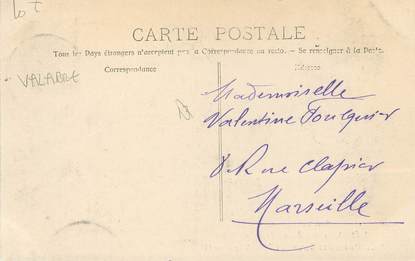 Lot
CARTE POSTALE
Tous les Pays étrangers n'acceptent pas la Correspondance au recto. - Se renseigner à la Poste.
Correspondance
Adresse
VALABRE
Mademoiselle
Valentine Foulquier
8 Rue Clapier
Marseille